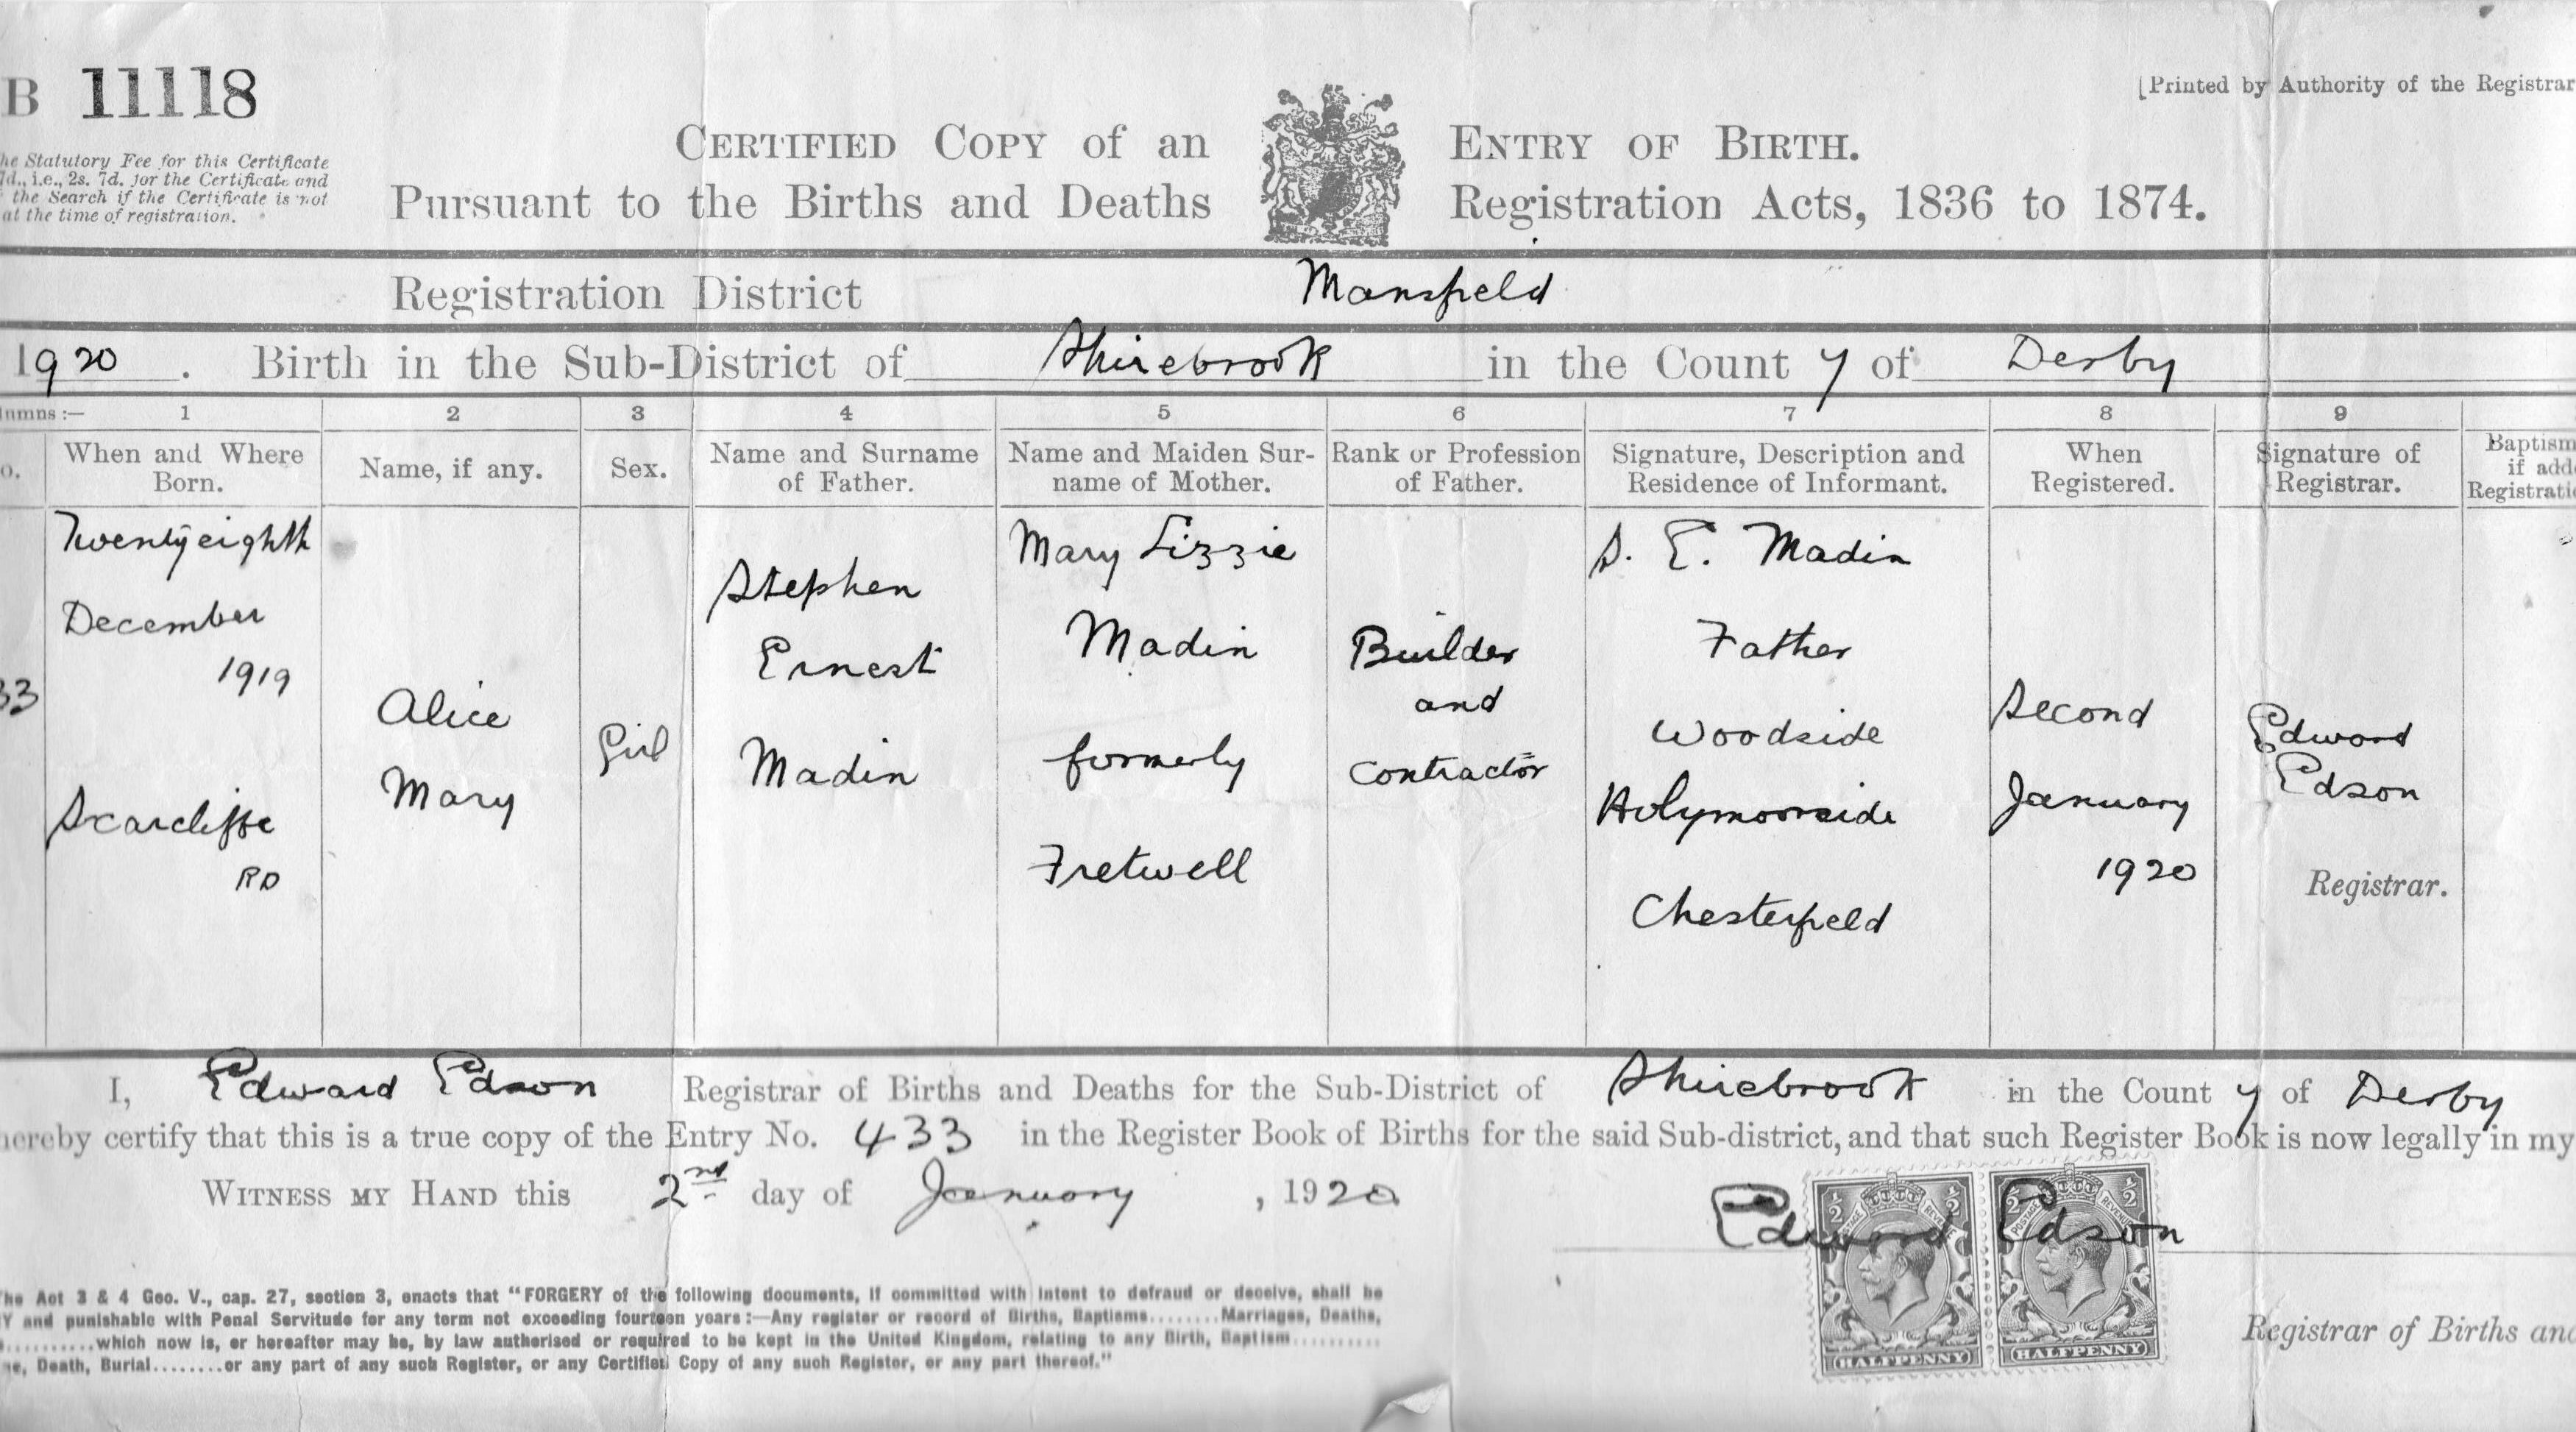 B 11118
[Printed by Authority of the Registrar
he Statutory Fee for this Certificate
7d., i.e., 2s. 7d. for the Certificate and
the Search if the Certificate is not
at the time of registration.
CERTIFIED COPY of an ENTRY OF BIRTH.
Pursuant to the Births and Deaths Registration Acts, 1836 to 1874.
Registration District Mansfield
1920. Birth in the Sub-District of Shirebrook in the County of Derby
lumns :— 1 2 3 4 5 6 7 8 9
o.
When and Where
Born.
Name, if any.
Sex.
Name and Surname
of Father.
Name and Maiden Sur-
name of Mother.
Rank or Profession
of Father.
Signature, Description and
Residence of Informant.
When
Registered.
Signature of
Registrar.
Baptism
if add
Registrati
33
Twentyeighth
December
1919
Scarcliffe
RD
Alice
Mary
Girl
Stephen
Ernest
Madin
Mary Lizzie
Madin
formerly
Fretwell
Builder
and
Contractor
S. E. Madin
Father
Woodside
Holymoorside
Chesterfield
Second
January
1920
Edward
Edson
Registrar.
I, Edward Edson Registrar of Births and Deaths for the Sub-District of Shirebrook in the County of Derby
hereby certify that this is a true copy of the Entry No. 433 in the Register Book of Births for the said Sub-district, and that such Register Book is now legally in my
WITNESS MY HAND this 2nd day of January, 1920
Edward Edson
½ ½ ½ ½
POSTAGE REVENUE POSTAGE REVENUE
HALFPENNY HALFPENNY
Registrar of Births and
The Act 3 & 4 Geo. V., cap. 27, section 3, enacts that "FORGERY of the following documents, if committed with intent to defraud or deceive, shall be
Y and punishable with Penal Servitude for any term not exceeding fourteen years:—Any register or record of Births, Baptisms........Marriages, Deaths,
..........which now is, or hereafter may be, by law authorised or required to be kept in the United Kingdom, relating to any Birth, Baptism..........
ge, Death, Burial........or any part of any such Register, or any Certified Copy of any such Register, or any part thereof."